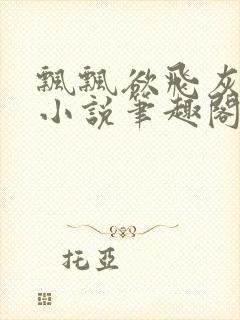 飄飄欲飛灰
小說筆趣閣
托亞